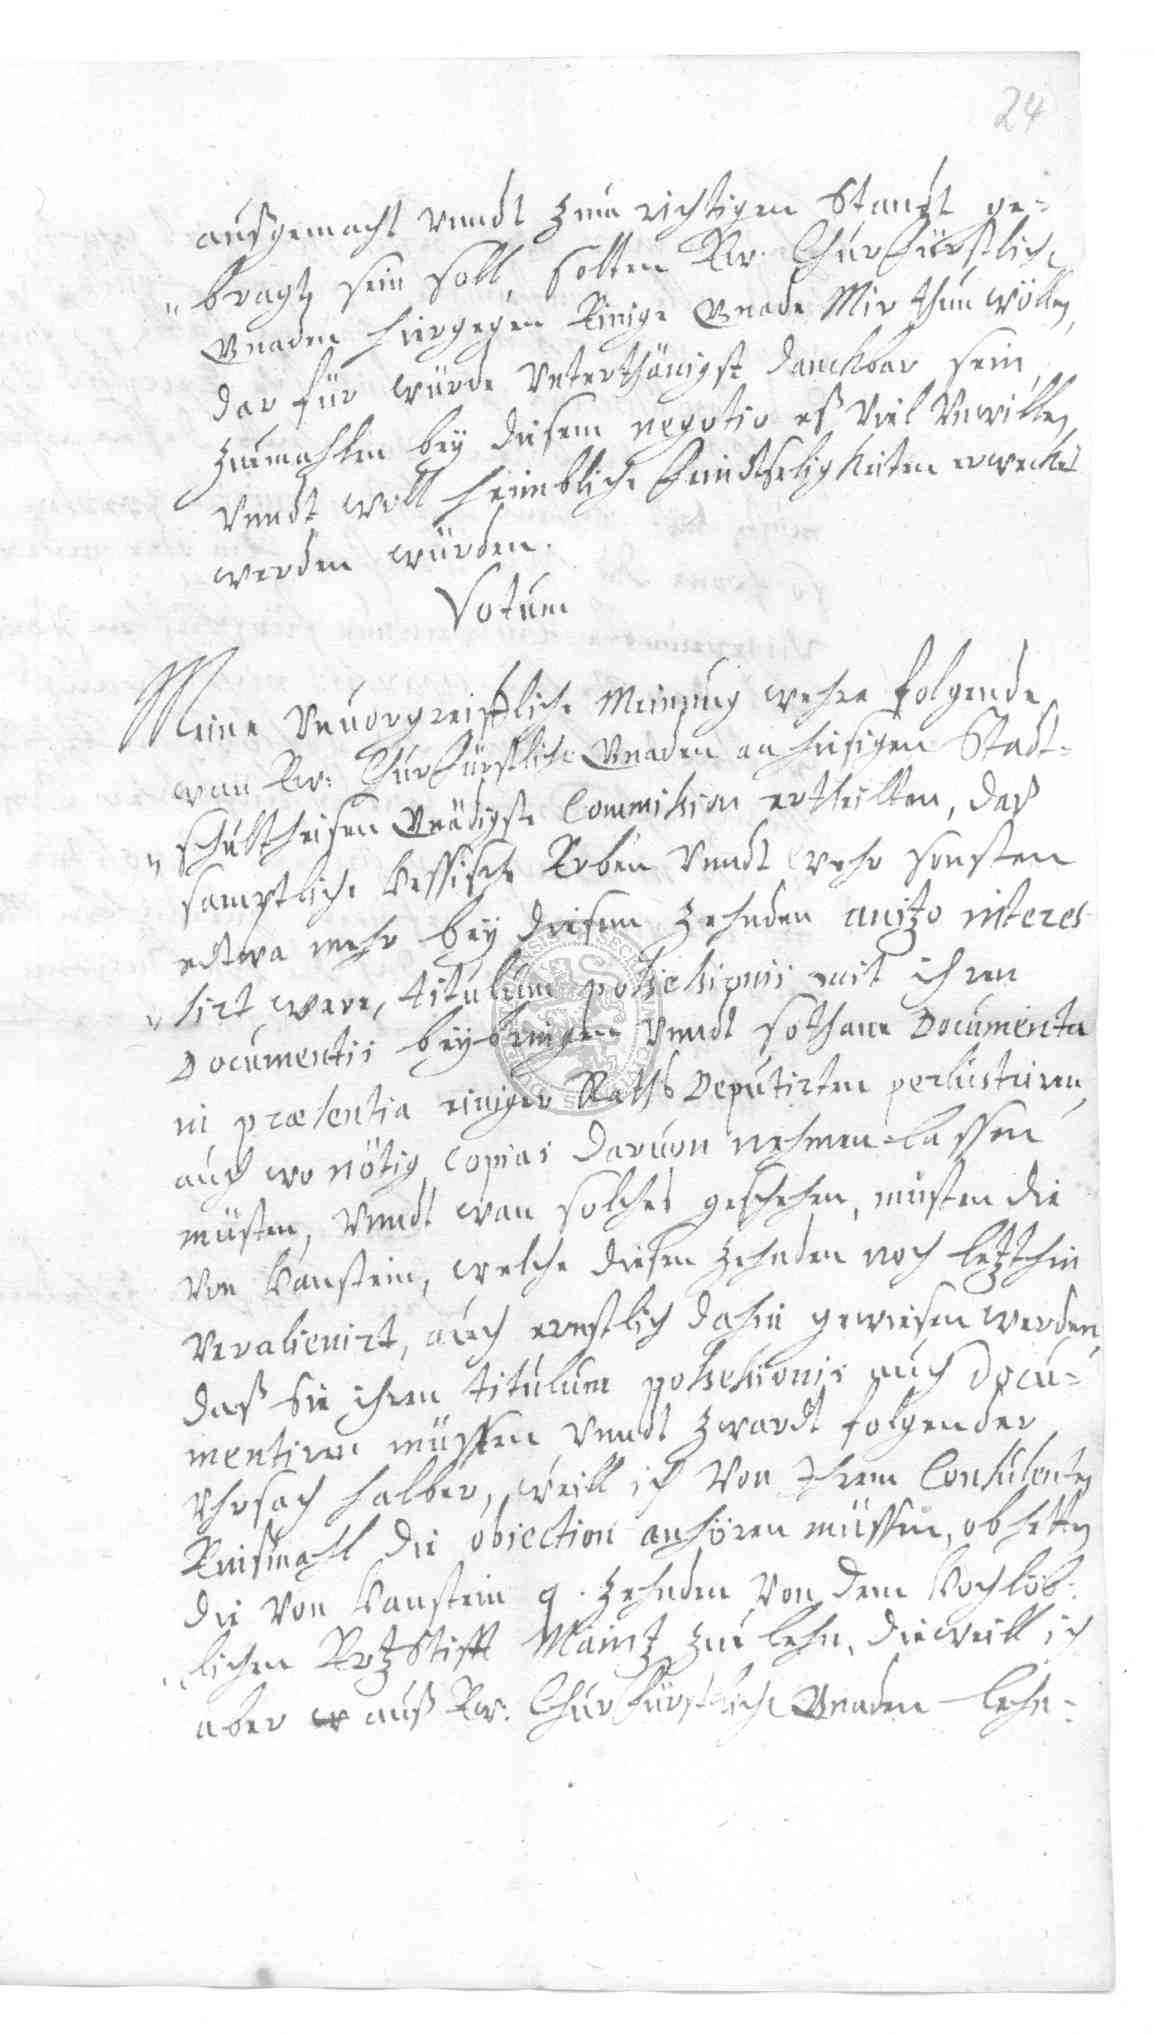 24
außgemacht unndt zum richtigen Standt ge-
bragt sein soll, solten Ew. Churfürstliche
Gnaden hiergegen Einige Gnade Mir thun wöllen,
dar für würde Unterthänigst danckbar sein,
zumahlen bey diesem negotio eß viel Unwillen
unndt woll heimbliche feindtseligkeiten erweckt
werden würden.
Votum
Meine Unvorgreiffliche Meinung wehre folgende
wan Ew. Churfürstliche Gnaden an hiesigen Stadt-
schultheisen Gnädigste Commission ertheilten, daß
samptliche Hessische Erben unndt wehr sonsten
edtwa mehr bey diesem Zehnden anitzo interes-
sirt were, titulum possessionis mit ihren
Documentis beybringen unndt sothane Documenta
in præsentia einiger Raths Deputirten perlustriren,
auch wo nötig copias darvon nehmen lassen
müsten, unndt wan solches geschehen, müsten die
von Hanstein, welche diesen Zehnden noch letzthin
veralienirt, auch ernstlich dahin gewiesen werden,
daß sie ihren titulum possessionis auch docu-
mentiren müssen unndt zwardt folgender
Uhrsach halber, weill ich von Ihrem Consulenten
Einsmahl die obiection anhören müssen, ob hetten
die von Hanstein q. Zehnden von dem Hochlöb-
lichen Ertz Stifft Maintz zue lehn, dieweill ich
aber auß Ew. Churfürstliche Gnaden lehn-